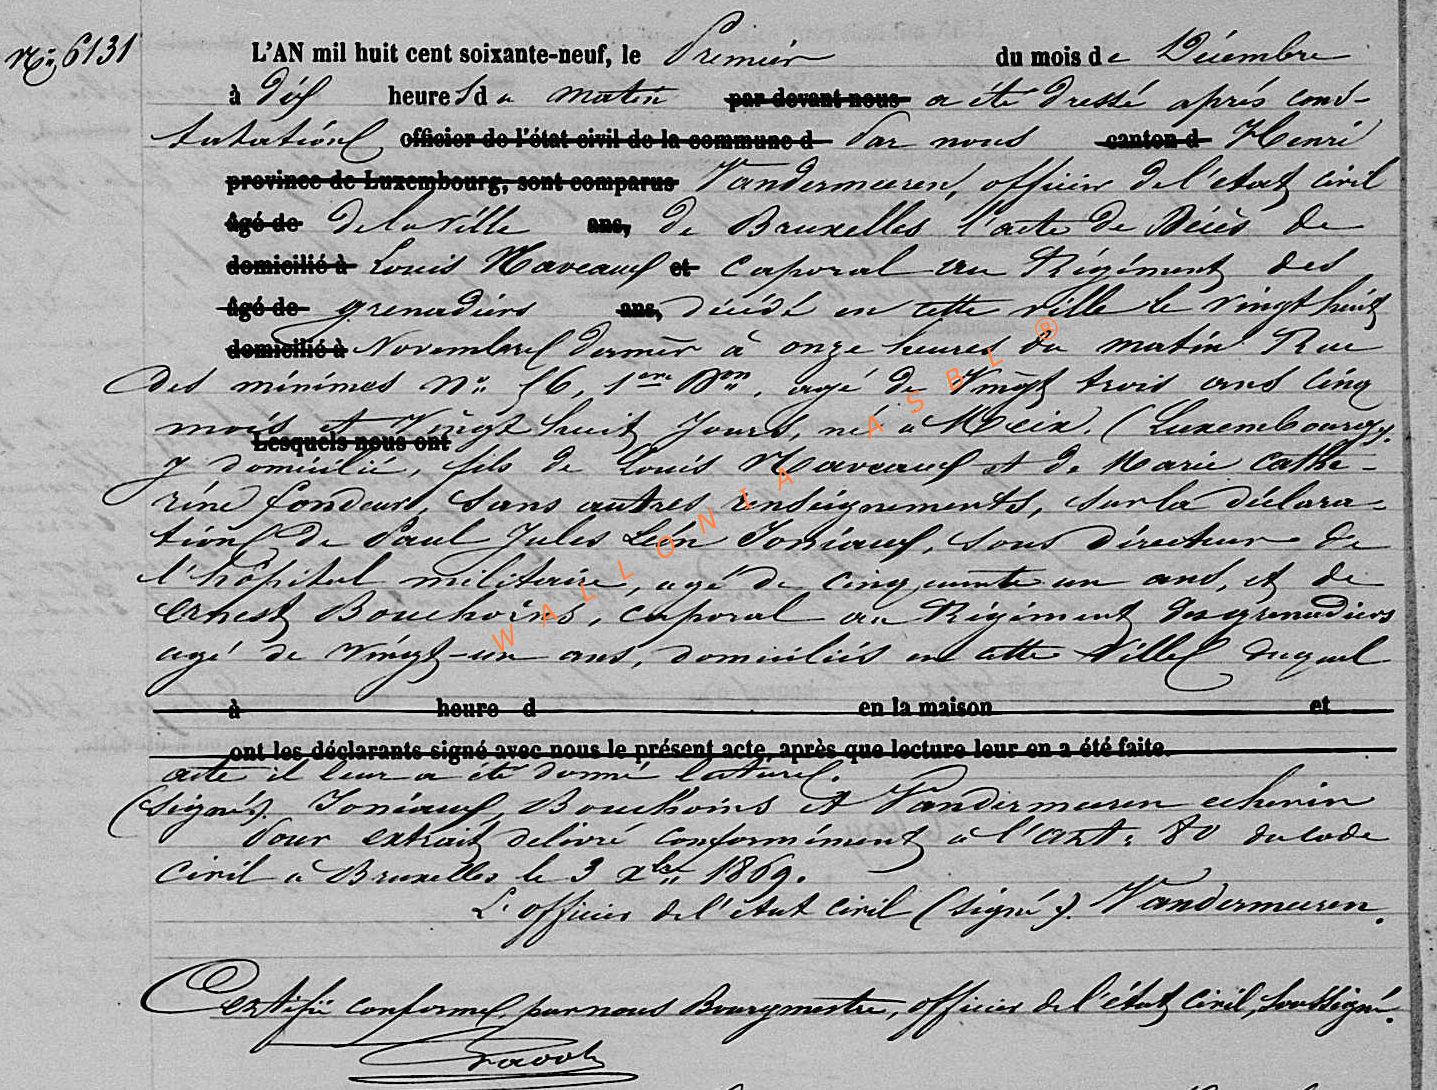 No 6131
L'AN mil huit cent soixante-neuf, le Premier du mois de Décembre
à dix heures du matin par devant nous a été dressé après cons-
tatation officier de l'état civil de la commune d Par nous canton d Henri
province de Luxembourg, sont comparus Vandermeeren, officier de l'etat civil
âgé de de la ville ans, de Bruxelles l'acte de Décès de
domicilié à Louis Haveaux et caporal au Régiment des
âgé de grenadiers ans, décédé en cette ville le vingt huit
domicilié à Novembre dernier à onze heures du matin Rue
des minimes No 56, 1ere Don, agé de Vingt trois ans cinq
mois et Vingt huit Jours, né à Meix. (Luxembourg).
Lesquels nous ont
y domicilié, fils de Louis Haveaux et de Marie Cathe-
rine fondeur, sans autres renseignements, sur la déclara-
tion de Paul Jules Léon Joniaux, sous Directeur de
l'hôpital militaire, agé de cinquante un ans, et de
Ernest Bouchoins, caporal au Régiment des grenadiers
agé de Vingt-un ans, domiciliés en cette Ville duquel
à heure d en la maison et
ont les déclarants signé avec nous le présent acte, après que lecture leur en a été faite.
acte il leur a été donné lecture.
(Signés). Joniaux, Bouchoins et Vandermeeren echevin
Pour extrait delivré conformément à l'art: 80 du code
Civil à Bruxelles le 3 xbre 1869.
L'officier de l'etat civil (signé). Vandermeeren.
Certifié conforme, par nous Bourgmestre, officier de l'état civil, soussigné.
WALLONIA ASBL ®